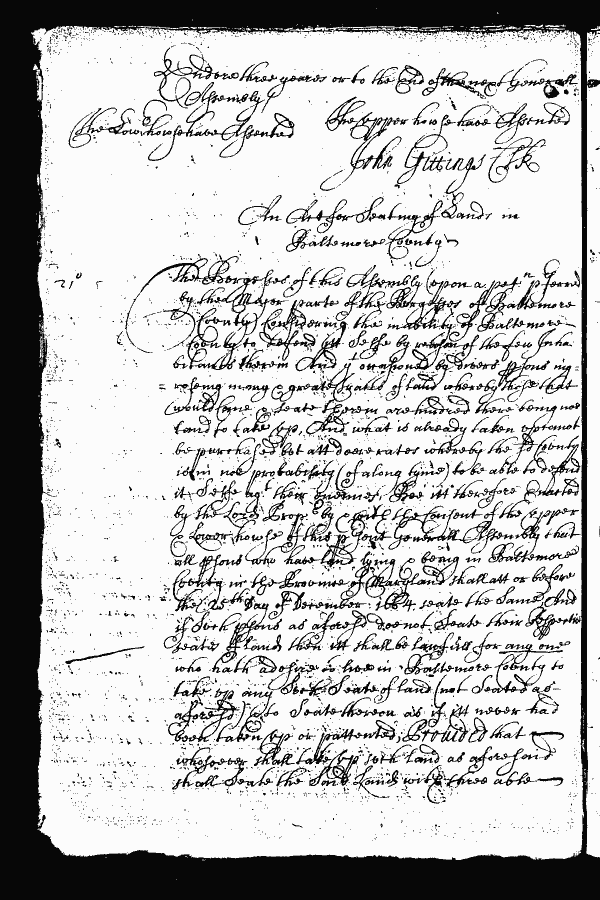 Endure three yeares or to the End of the next Generall
Assembly
The Lower howse have Assented The Upper howse have Assented
John Gittings Clk
An Act for Seating of Lands in
Baltemore County
21o
The Burgesses of this Assembly (upon a petn pferred
by the Major parte of the Burgesses of Baltemore
County) Considering the inability of Baltemore
County to defend itt Selfe by reason of the few Inha
bitants therein And yt occasioned by divers psons
many & greate tracts of land whereby those that
would come & seate therein are hindred there being noe
land to take up, And what is already taken up cannot
be purchased but att deere rates whereby the sd County
is in noe probability (of a long tyme) to be able to defend
it Selfe agt their enemies, Bee itt therefore Enacted
by the Lord Propr by & with the Consent of the upper
& Lower howse of this psent Generall Assembly that
all psons who have land lying & being in Baltemore
County in the Province of Maryland shall att or before
the 25th Day of December 1664 seate the Same And
if Such psons as aforesd doe not Seate their Respective
seates of land, then itt shall be lawfull for any one
who hath a desire to live in Baltemore County to
take up any Such Seate of land (not Seated as
aforesd) & to Seate thereon as if itt never had
been taken up or pattented; Provided that
whosoever shall take up such land as aforesaid
shall Seate the Said Land with three able